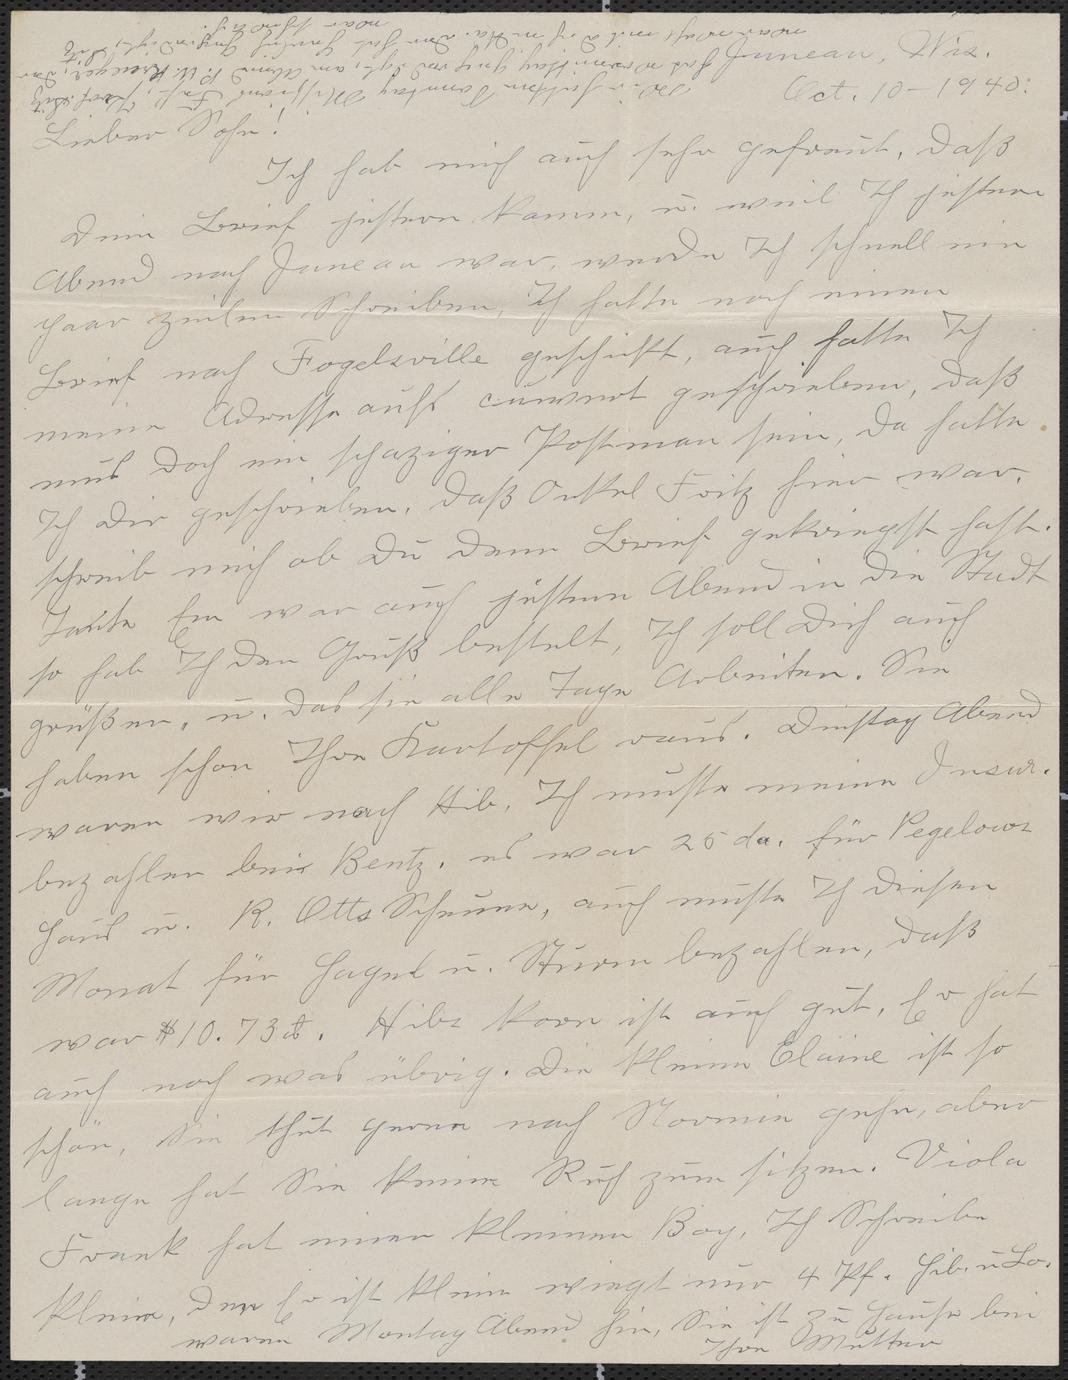 Juneau, Wis.
Oct. 10 - 1940.
Lieber Sohn!
Ich hab mich auch sehr gefreut, daß
Dein Brief jestern kamm, u. weil Ich jestern
Abend nach Juneau war, werde Ich schnell ein
paar zeilen Schreiben, Ich hatte noch einen
Brief nach Fogelsville geschickt, auch hatte Ich
meine Adresse aufs cuwert geschrieben, daß
mus doch ein schaziger Postman sein, da hatte
Ich dir geschrieben, daß Onkel Fritz hier war,
schreib mich ob Du denn Brief gekriegst hast.
Tante Em war auch jestern Abend in die Stadt
so hab Ich den Gruß bestelt, Ich soll Dich auch
grüßen, u. das sie alle Tage Arbeiten. Sie
haben schon Ihre Kartoffel raus. Dinstag Abend
waren wir nach Hib, Ich muste meine Insur.
bezahlen beir Bentz. es war 25 da. für Pegelows
Haus u. R. Otts Scheune, auch muste Ich diesen
Monat für Hagel u. Sturm bezahlen, daß
war $10.73 ¢. Hibs korn ist auch gut, Er hat
auch noch was übrig. Die kleine Elaine ist so
schön, Sie thut gerne nach Normie gehn, aber
lange hat Sie keine Ruh zum sitzen. Viola
Frank hat einen kleinen Boy, Ich Schreibe
klein, den Er ist klein wiegt nur 4 Pf. Hib. u Lo.
waren Montag Abend hin, Sie ist zu Hause bei
Ihre Mutter